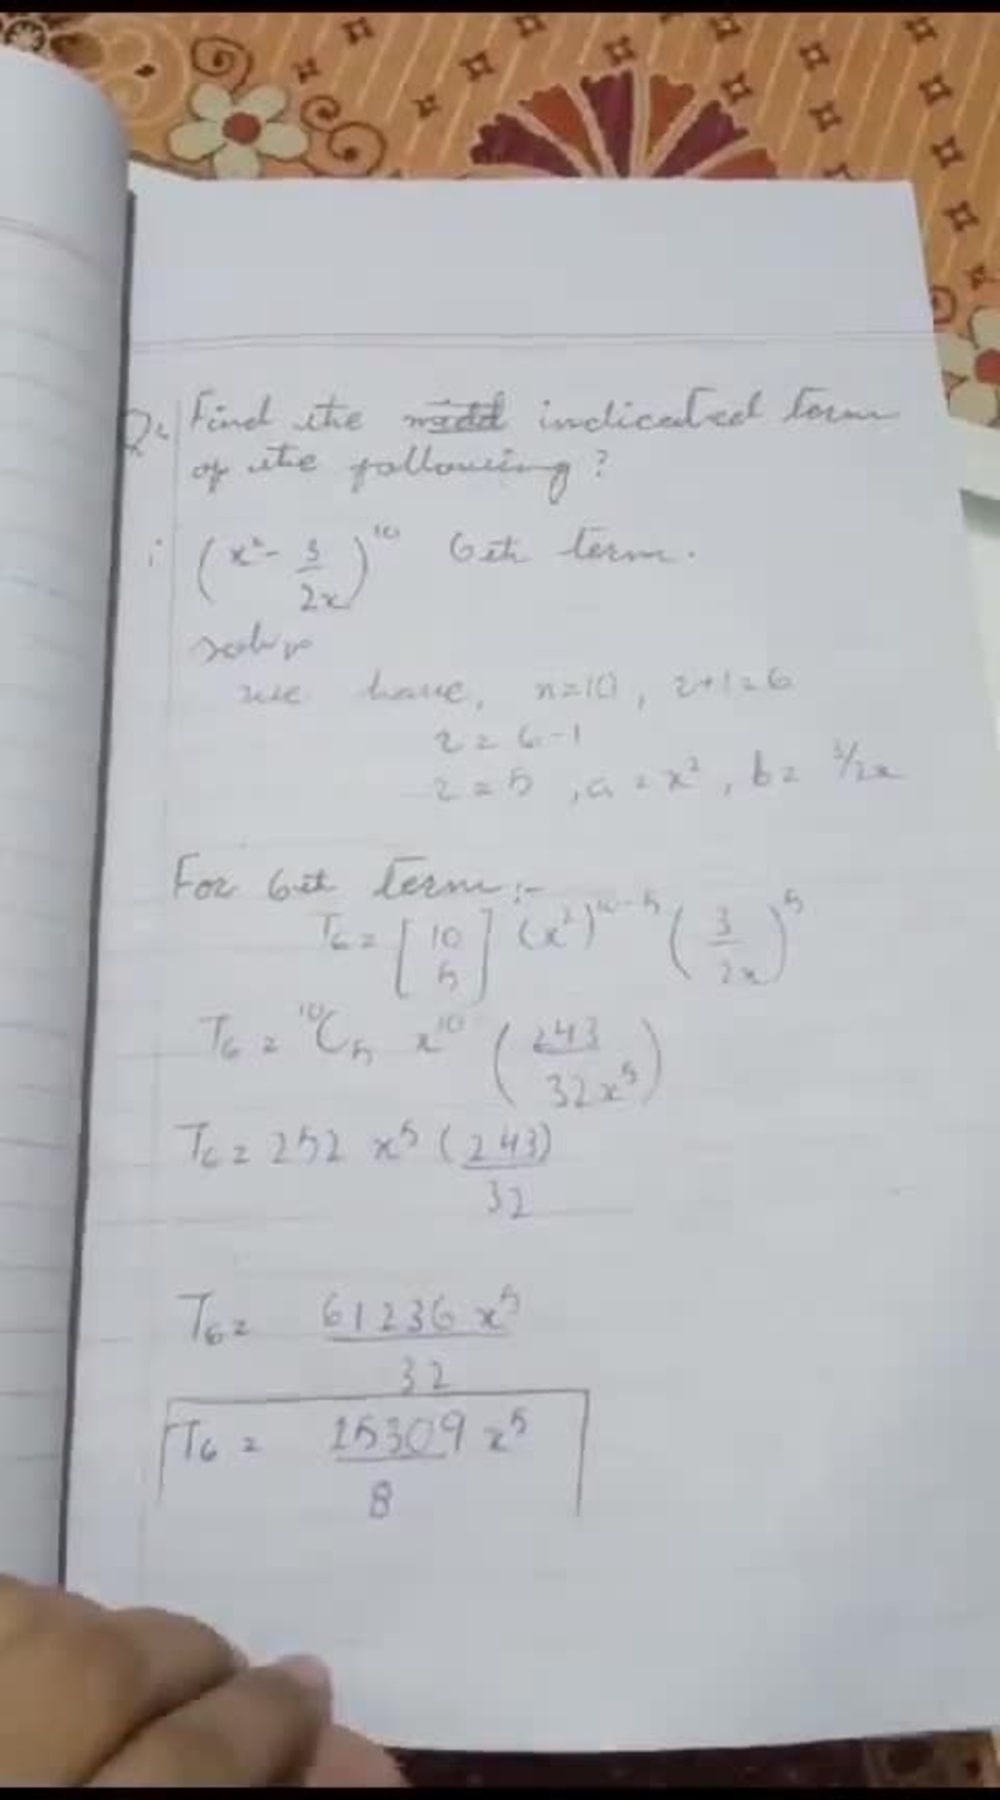 Q: Find the midd indicated term
of the following?
i (x² - 3/2x)¹⁰ 6th term.
soln
we have, n=10, r+1=6
r = 6-1
r = 5 , a = x², b = 3/2x
For 6th term :-
T₆ = [10 5] (x²)¹⁰⁻⁵ (3/2x)⁵
T₆ = ¹⁰C₅ x¹⁰ (243/32x⁵)
T₆ = 252 x⁵ (243)/32
T₆ = 61236 x⁵/32
T₆ = 15309 x⁵/8